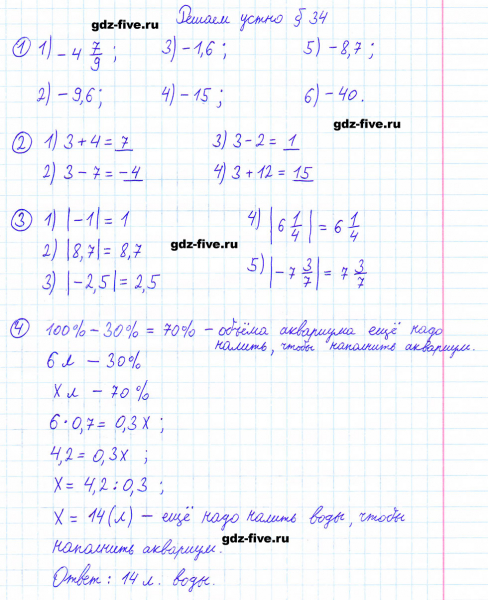 gdz-five.ru
Решаем устно § 34
① 1) -4 7/9 ; 3) -1,6 ; 5) -8,7 ;
2) -9,6 ; 4) -15 ; 6) -40.
gdz-five.ru
② 1) 3 + 4 = 7 3) 3 - 2 = 1
2) 3 - 7 = -4 4) 3 + 12 = 15
③ 1) |-1| = 1 4) |6 1/4| = 6 1/4
2) |8,7| = 8,7 gdz-five.ru
3) |-2,5| = 2,5 5) |-7 3/7| = 7 3/7
④ 100% - 30% = 70% - объёма аквариума ещё надо
налить, чтобы наполнить аквариум.
6 л - 30%
х л - 70%
6 · 0,7 = 0,3х ;
4,2 = 0,3х ;
х = 4,2 : 0,3 ;
х = 14 (л) - ещё надо налить воды, чтобы
наполнить аквариум.
gdz-five.ru
Ответ: 14 л. воды.